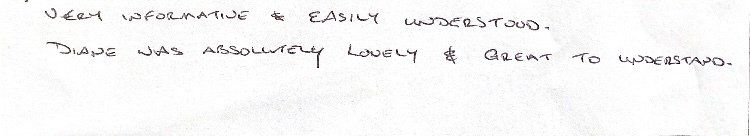 VERY INFORMATIVE & EASILY UNDERSTOOD.
DIANE WAS ABSOLUTELY LOVELY & GREAT TO UNDERSTAND.